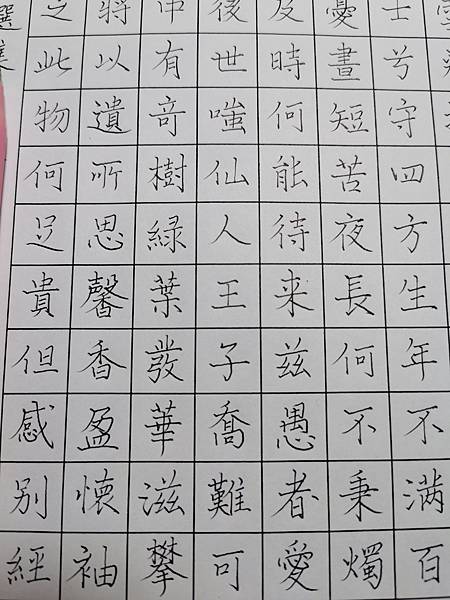 士兮守四方生年不满百
憂晝短苦夜長何不秉燭
及時何能待来兹愚者愛
後世嗤仙人王子喬難可
中有奇樹緑葉發華滋攀
將以遺所思馨香盈懷袖
之此物何足貴但感別經
選